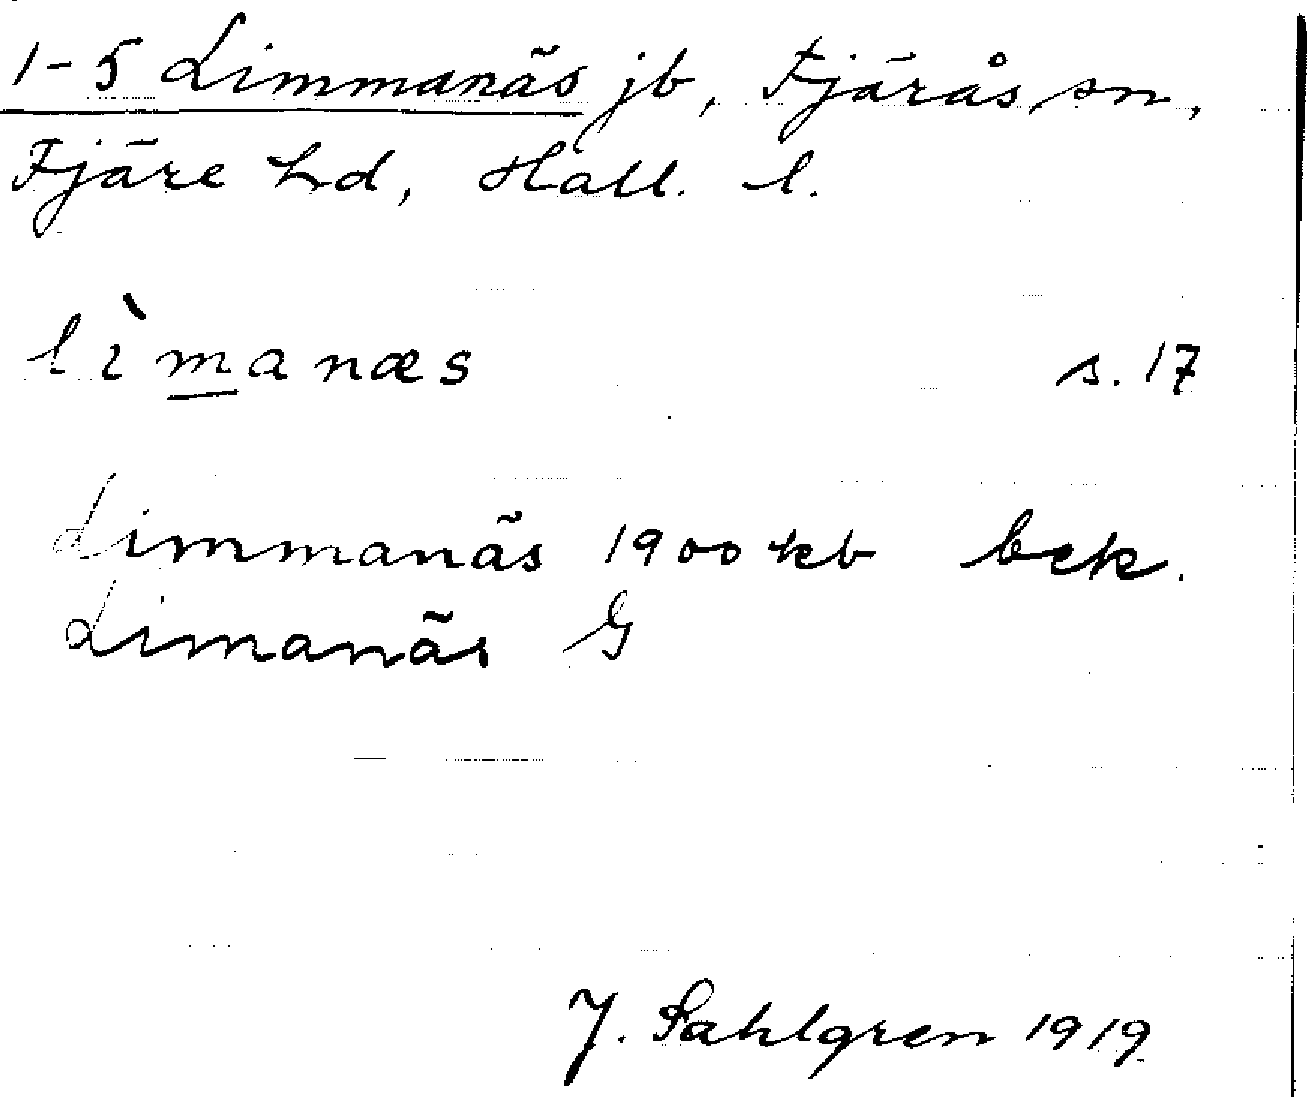 1-5 Limmanäs jb, Fjärås sn,
Fjäre hd, Hall. l.
lìmanæs s. 17
Limmanäs 1900 kb bek.
Limanäs G
J. Sahlgren 1919